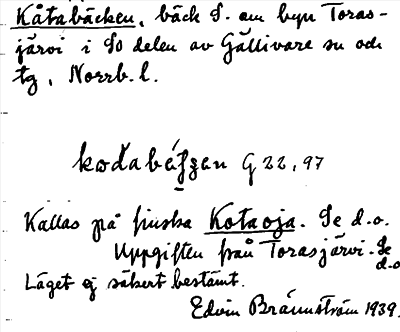 Kåtabäcken, bäck S. om byn Toras-
järvi i SO delen av Gällivare sn och
tg, Norrb. l.
G 22, 97
Kallas på finska Kotaoja. Se d.o.
Uppgiften från Torasjärvi. Se
d.o
Läget ej säkert bestämt.
Edvin Brännström 1939.